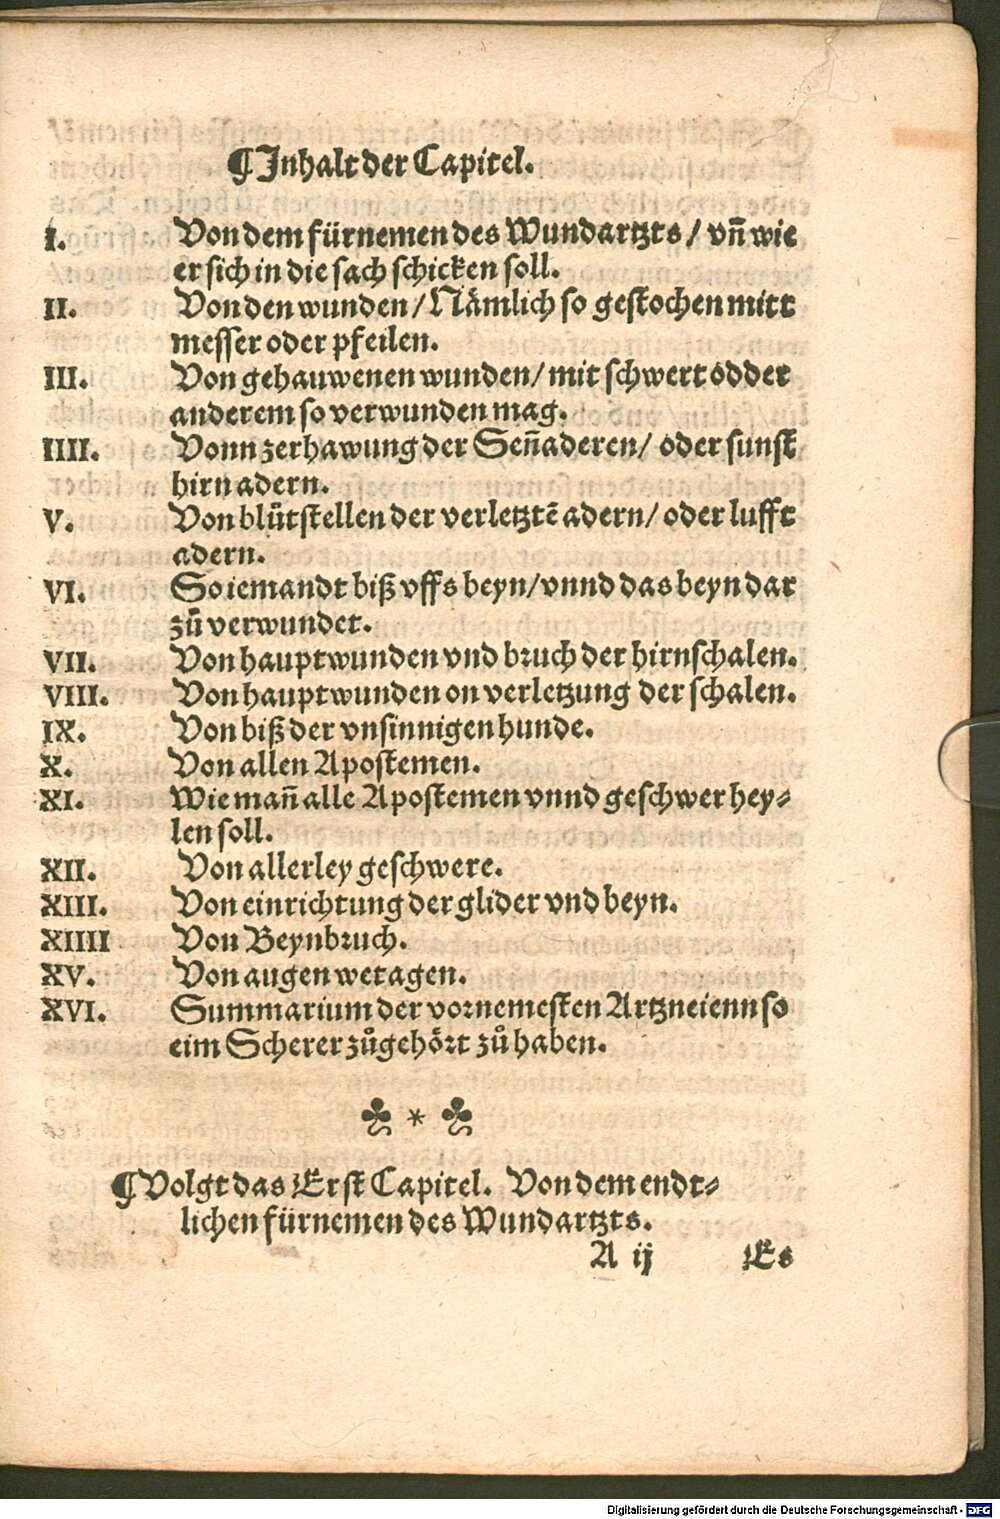 ¶ Inhalt der Capitel.
I. Von dem fürnemen des Wundartzts / vn̄ wie
er sich in die sach schicken soll.
II. Von den wunden / Nämlich so gestochen mitt
messer oder pfeilen.
III. Von gehauwenen wunden / mit schwert odder
anderem so verwunden mag.
IIII. Vonn zerhawung der Sen̄aderen / oder sunst
hirn adern.
V. Von blůtstellen der verletztē adern / oder lufft
adern.
VI. So iemandt biß vffs beyn / vnnd das beyn dar
zů verwundet.
VII. Von hauptwunden vnd bruch der hirnschalen.
VIII. Von hauptwunden on verletzung der schalen.
IX. Von biß der vnsinnigen hunde.
X. Von allen Apostemen.
XI. Wie man̄ alle Apostemen vnnd geschwer hey⸗
len soll.
XII. Von allerley geschwere.
XIII. Von einrichtung der glider vnd beyn.
XIIII Von Beynbruch.
XV. Von augen wetagen.
XVI. Summarium der vornemesten Artzneienn so
eim Scherer zůgehört zů haben.
♣ * ♣
¶ Volgt das Erst Capitel. Von dem endt⸗
lichen fürnemen des Wundartzts.
A ij Es
Digitalisierung gefördert durch die Deutsche Forschungsgemeinschaft - DFG